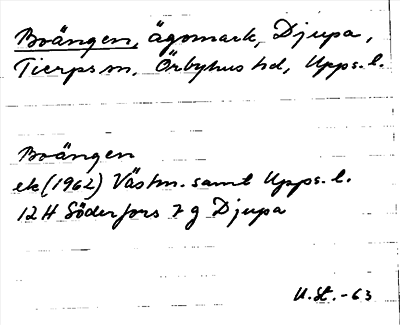 Boängen, ägomark, Djupa,
Tierps sn, Örbyhus hd, Upps. l.
Boängen
ek (1962) Västm. samt Upps. l.
12 H Söderfors 7 g Djupa
U.St. -63